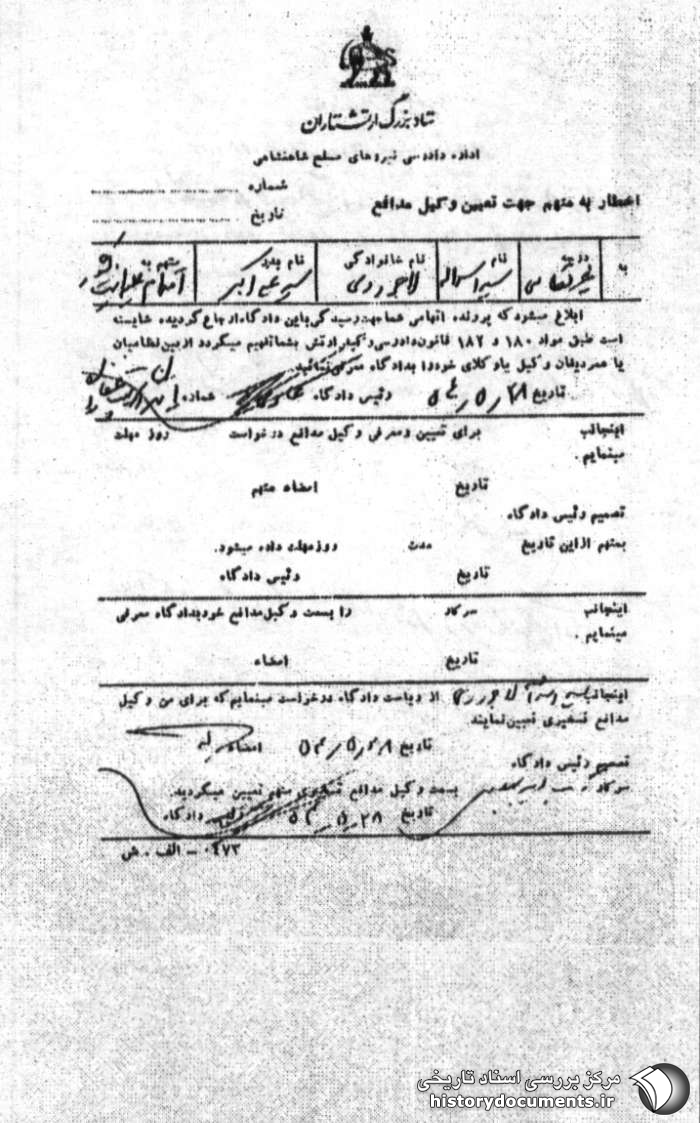 ستاد بزرگ ارتشتاران
اداره دادرسی نیروهای مسلح شاهنشاهی
شماره
اخطار به متهم جهت تعیین وکیل مدافع
تاریخ
به درجه غیرنظامی نام سید اسداله نام خانوادگی لاجوردی نام پدر سید علی اکبر متهم به اقدام علیه امنیت
ابلاغ میشود که پرونده اتهامی شما جهت رسیدگی باین دادگاه ارجاع گردیده شایسته
است طبق مواد ۱۸۰ و ۱۸۲ قانون دادرسی و کیفر ارتش بشما تفهیم میگردد از بین نظامیان
یا همردیفان وکیل یا وکلای خود را بدادگاه معرفی نمائید.
تاریخ ۵۴/۵/۲۸ رئیس دادگاه شماره
اینجانب برای تعیین و معرفی وکیل مدافع درخواست روز مهلت
مینمایم.
تاریخ امضاء متهم
تصمیم رئیس دادگاه
بمتهم از این تاریخ مدت روز مهلت داده میشود.
تاریخ رئیس دادگاه
اینجانب سرکار را بسمت وکیل مدافع خود بدادگاه معرفی
مینمایم.
تاریخ امضاء
اینجانب سید اسداله لاجوردی از ریاست دادگاه درخواست مینمایم که برای من وکیل
مدافع تسخیری تعیین نمایند
تاریخ ۵۴/۵/۲۸ امضاء
تصمیم رئیس دادگاه
سرکار بسمت وکیل مدافع تسخیری متهم تعیین میگردید.
تاریخ ۵۴/۵/۲۸ رئیس دادگاه
۰۴۷۳ - الف . ش
مرکز بررسی اسناد تاریخی
historydocuments.ir